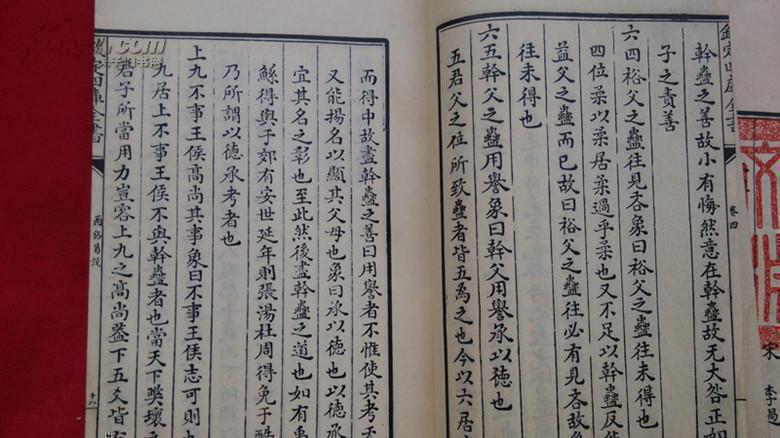 欽定四庫全書
幹蠱之善故小有悔然意在幹蠱故无大咎正如
子之責善
六四裕父之蠱往見吝象曰裕父之蠱往未得也
四位柔以柔居柔過乎柔也又不足以幹蠱反能
益父之蠱而已故曰裕父之蠱往必有見吝故
往未得也
六五幹父之蠱用譽象曰幹父用譽承以德也
五君父之位所致蠱者皆五為之也今以六居
卷四
而得中故盡幹蠱之善曰用譽者不惟使其考无
又能揚名以顯其父母也象曰承以德也以德承
宜其名之彰也至此然後盡幹蠱之道也如有禹
鯀得與于郊有安世延年則張湯杜周得免于酷
乃所謂以德承考者也
上九不事王侯高尚其事象曰不事王侯志可則也
九居上不事王侯不與幹蠱者也當天下弊壞之
君子所當用力豈容上九之高尚蓋下五爻皆有
欽定四庫全書
西谿易說
十八
宋
李